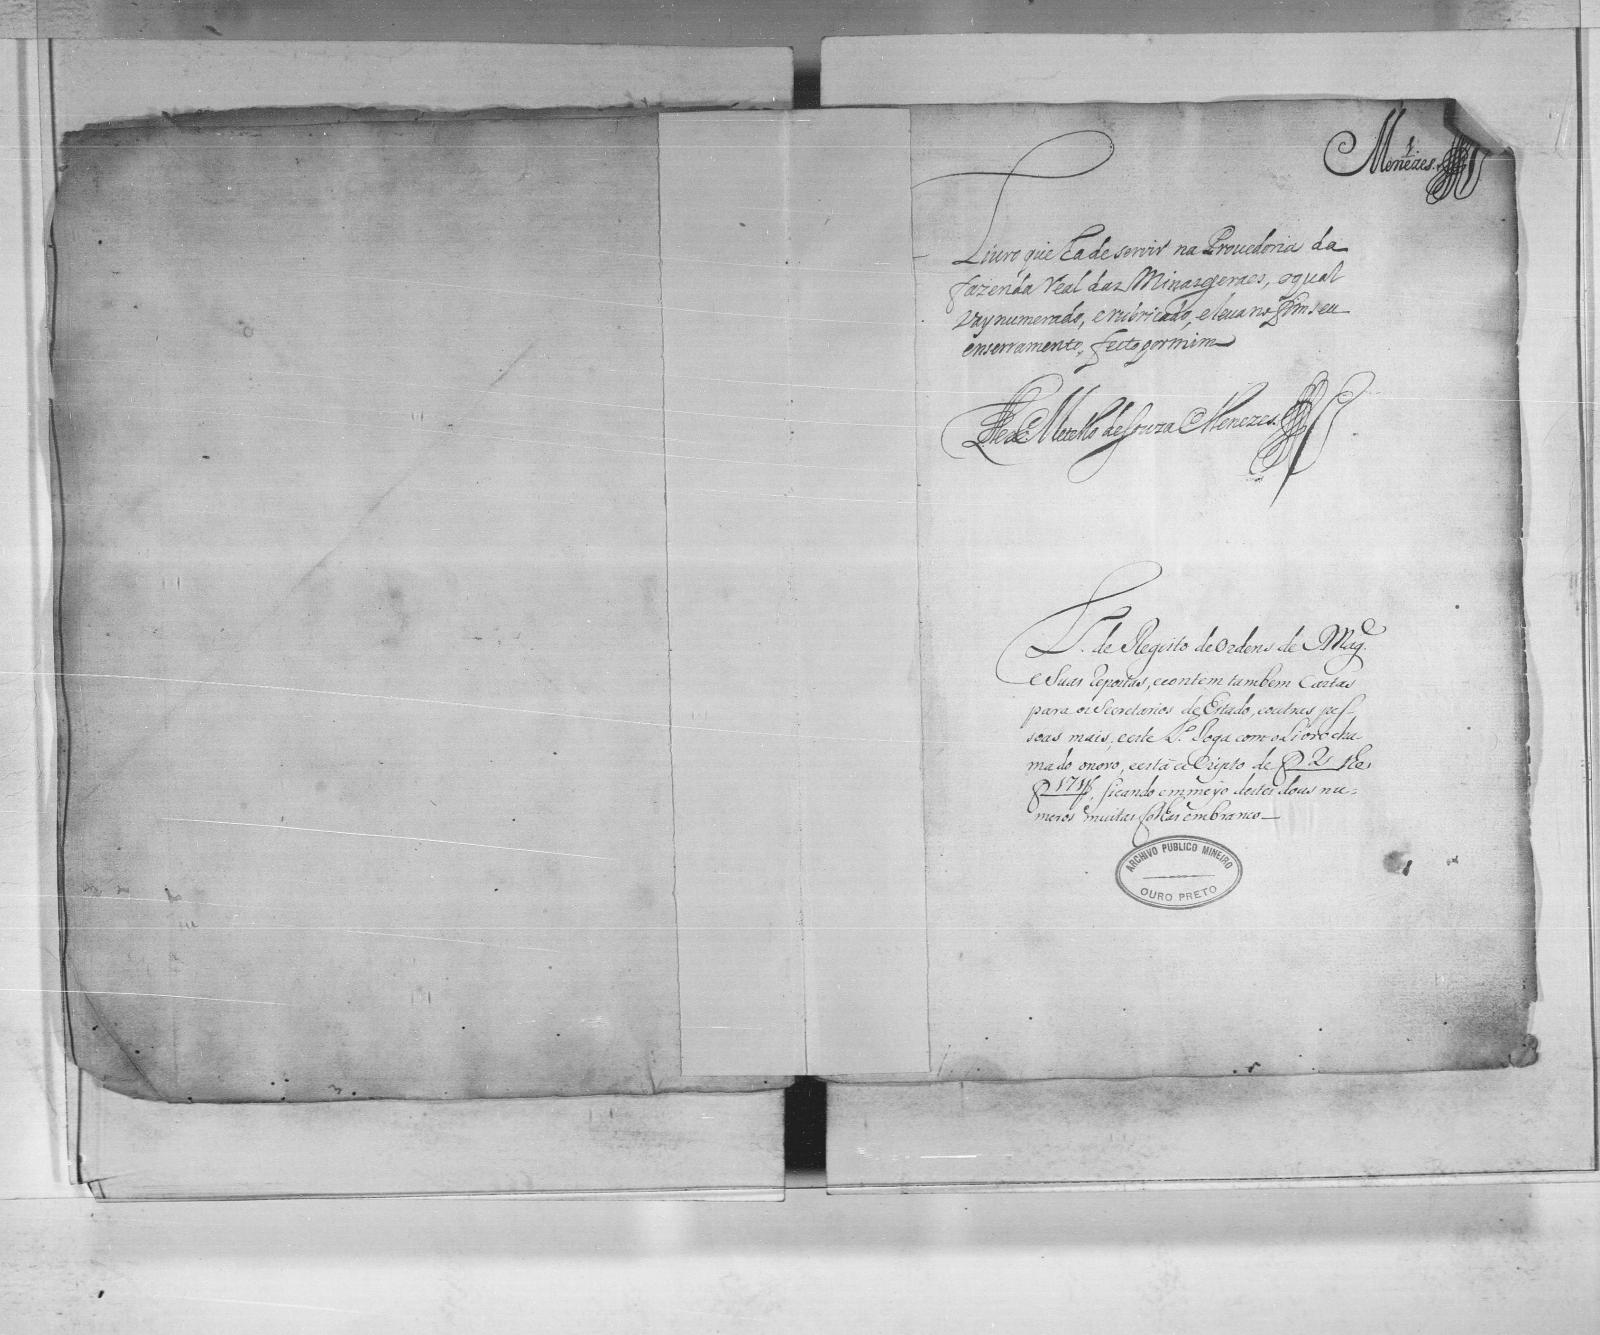 1
Menezes.
Liuro que ha de servir na Prouedoria da
fazenda real das Minas geraes, o qual
vay numerado, e rubricado, e leua no fim seu
enserramento, feito por mim
de Mello de Souza Menezes.
L.º de Registo de ordens de Mag.e
e suas repostas, e contem tambem Cartas
para os Secretarios de Estado, e outras pes-
soas mais, e este L.º joga com o Livro cha
mado novo, e está escripto de f 2 the
f 171, ficando em meyo destes dous nu-
meros muitas folhas em branco
ARCHIVO PUBLICO MINEIRO
OURO PRETO